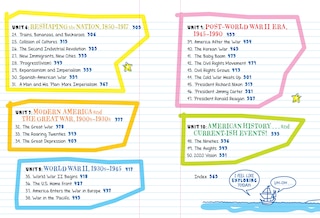 UNIT 6: RESHAPING the NATION, 1850–1917 303
23. Trains, Bonanzas, and Buckaroos 304
24. Collision of Cultures 313
25. The Second Industrial Revolution 325
26. New Immigrants, New Cities 335
27. Progressivism 343
28. Expansionism and Imperialism 353
30. Spanish-American War 359
31. A Man and His Plan: More Imperialism 367
UNIT 7: MODERN AMERICA and
the ROARING TWENTIES, 1910s–1930s 377
32. The Great War 378
33. The Roaring Twenties 389
34. The Great Depression 403
UNIT 8: WORLD WAR II, 1930s–1945 417
35. World War II Begins 418
36. The U.S. Home Front 427
37. America Enters the War in Europe 437
38. War in the Pacific 443
UNIT 9: POST–WORLD WAR II ERA,
1945–1990 453
39. America After the War 454
40. The Korean War 463
41. The Baby Boom 471
42. The Civil Rights Movement 477
43. Civil Rights Grows 493
44. The Cold War Heats Up 501
45. President Richard Nixon 513
46. President Jimmy Carter 521
47. President Ronald Reagan 527
UNIT 10: AMERICAN HISTORY . . . and
CURRENT-ISH EVENTS! 533
48. The Nineties 534
49. The Aughts 543
50. 2020 Vision 551
Index 565
I FEEL LIKE
EXPLORING
TODAY!